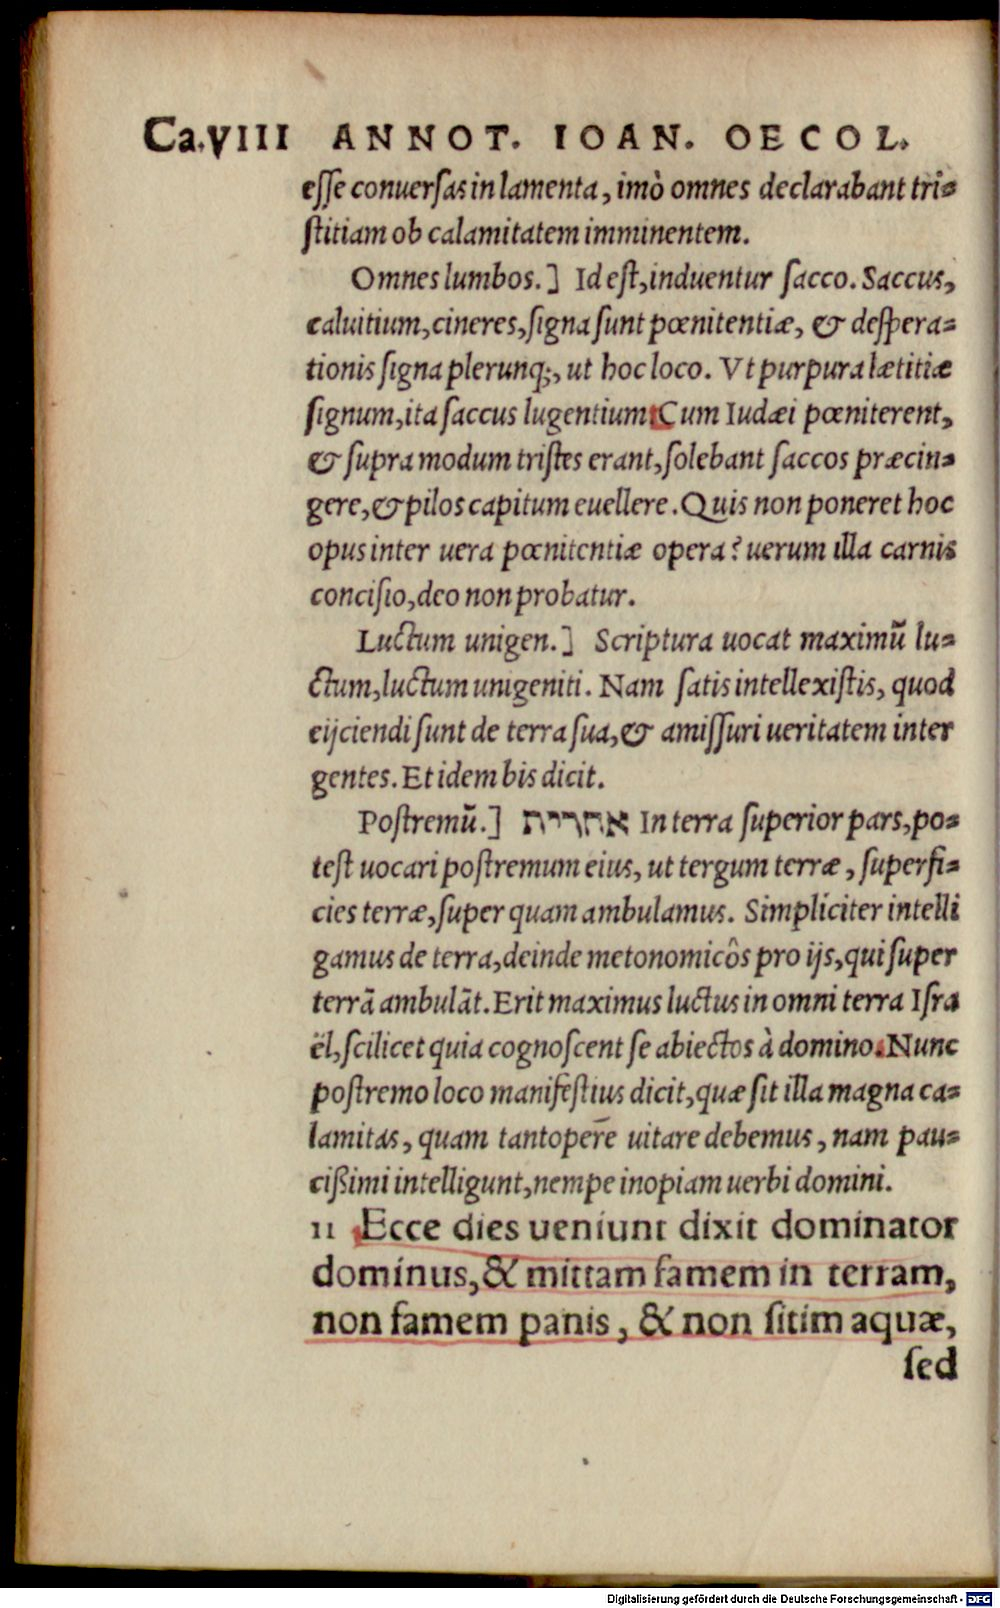 Ca.VIII ANNOT. IOAN. OECOL.
esse conuersas in lamenta, imò omnes declarabant tri-
stitiam ob calamitatem imminentem.
Omnes lumbos.] Id est, induentur sacco. Saccus,
caluitium, cineres, signa sunt pœnitentiæ, & despera-
tionis signa plerunq;, ut hoc loco. Vt purpura lætitiæ
signum, ita saccus lugentium. Cum Iudæi pœniterent,
& supra modum tristes erant, solebant saccos præcin-
gere, & pilos capitum euellere. Quis non poneret hoc
opus inter uera pœnitentiæ opera? uerum illa carnis
concisio, deo non probatur.
Luctum unigen.] Scriptura uocat maximũ lu-
ctum, luctum unigeniti. Nam satis intellexistis, quod
eijciendi sunt de terra sua, & amissuri ueritatem inter
gentes. Et idem bis dicit.
Postremũ.] אחרית In terra superior pars, po-
test uocari postremum eius, ut tergum terræ, superfi-
cies terræ, super quam ambulamus. Simpliciter intelli
gamus de terra, deinde metonomicôs pro ijs, qui super
terrã ambulãt. Erit maximus luctus in omni terra Isra
ël, scilicet quia cognoscent se abiectos à domino. Nunc
postremo loco manifestius dicit, quæ sit illa magna ca-
lamitas, quam tantopere uitare debemus, nam pau-
cißimi intelligunt, nempe inopiam uerbi domini.
11 Ecce dies ueniunt dixit dominator
dominus, & mittam famem in terram,
non famem panis, & non sitim aquæ,
sed
Digitalisierung gefördert durch die Deutsche Forschungsgemeinschaft - DFG